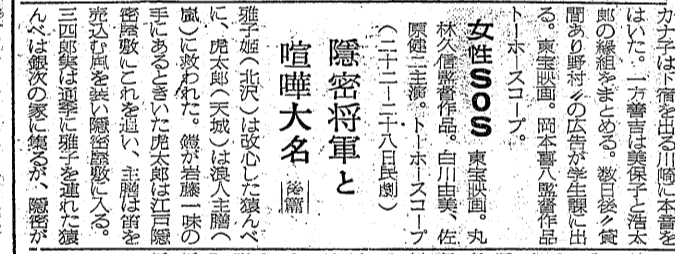 カナ子は下宿を出る川崎に本音を
はいた。一方善吉は美保子と浩太
郎の縁組をまとめる。数日後〃貸
間あり野村〃の広告が学生課に出
る。東宝映画。岡本喜八監督作品
トーホースコープ。
女性SOS 東宝映画。丸
林久信監督作品。白川由美、佐
原健二主演。トーホースコープ
(二十二―二十八日民劇)
隠密将軍と
喧嘩大名 後篇
雅子姫(北沢)は改心した猿んべ
に、虎太郎(天城)は浪人主膳(
嵐)に救われた。鎧が岩藤一味の
手にあるときいた虎太郎は江戸隠
密屋敷にこれを追い、主膳は笛を
売込む風を装い隠密屋敷に入る。
三四郎実は通季に雅子を連れた猿
んべは銀次の家に集るが、隠密が